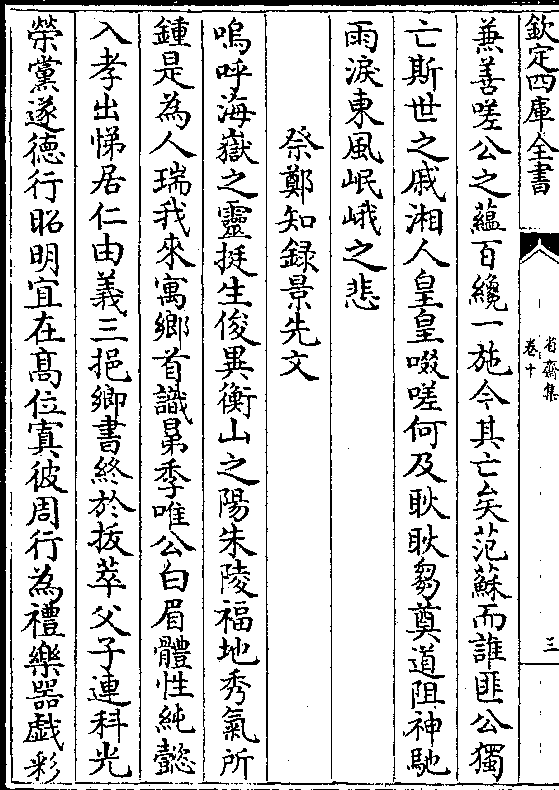 欽定四庫全書
省齋集
卷十
三
兼善嗟公之蘊百纔一施今其亡矣范蘇而誰匪公獨
亡斯世之戚湘人皇皇啜嗟何及耿耿芻奠道阻神馳
雨淚東風岷峨之悲
祭鄭知録景先文
嗚呼海嶽之靈挺生俊異衡山之陽朱陵福地秀氣所
鍾是為人瑞我來寓鄉首識昻季唯公白眉體性純懿
入孝出悌居仁由義三挹鄉書終於拔萃父子連科光
榮黨遂德行昭明宜在髙位寘彼周行為禮樂器戯彩